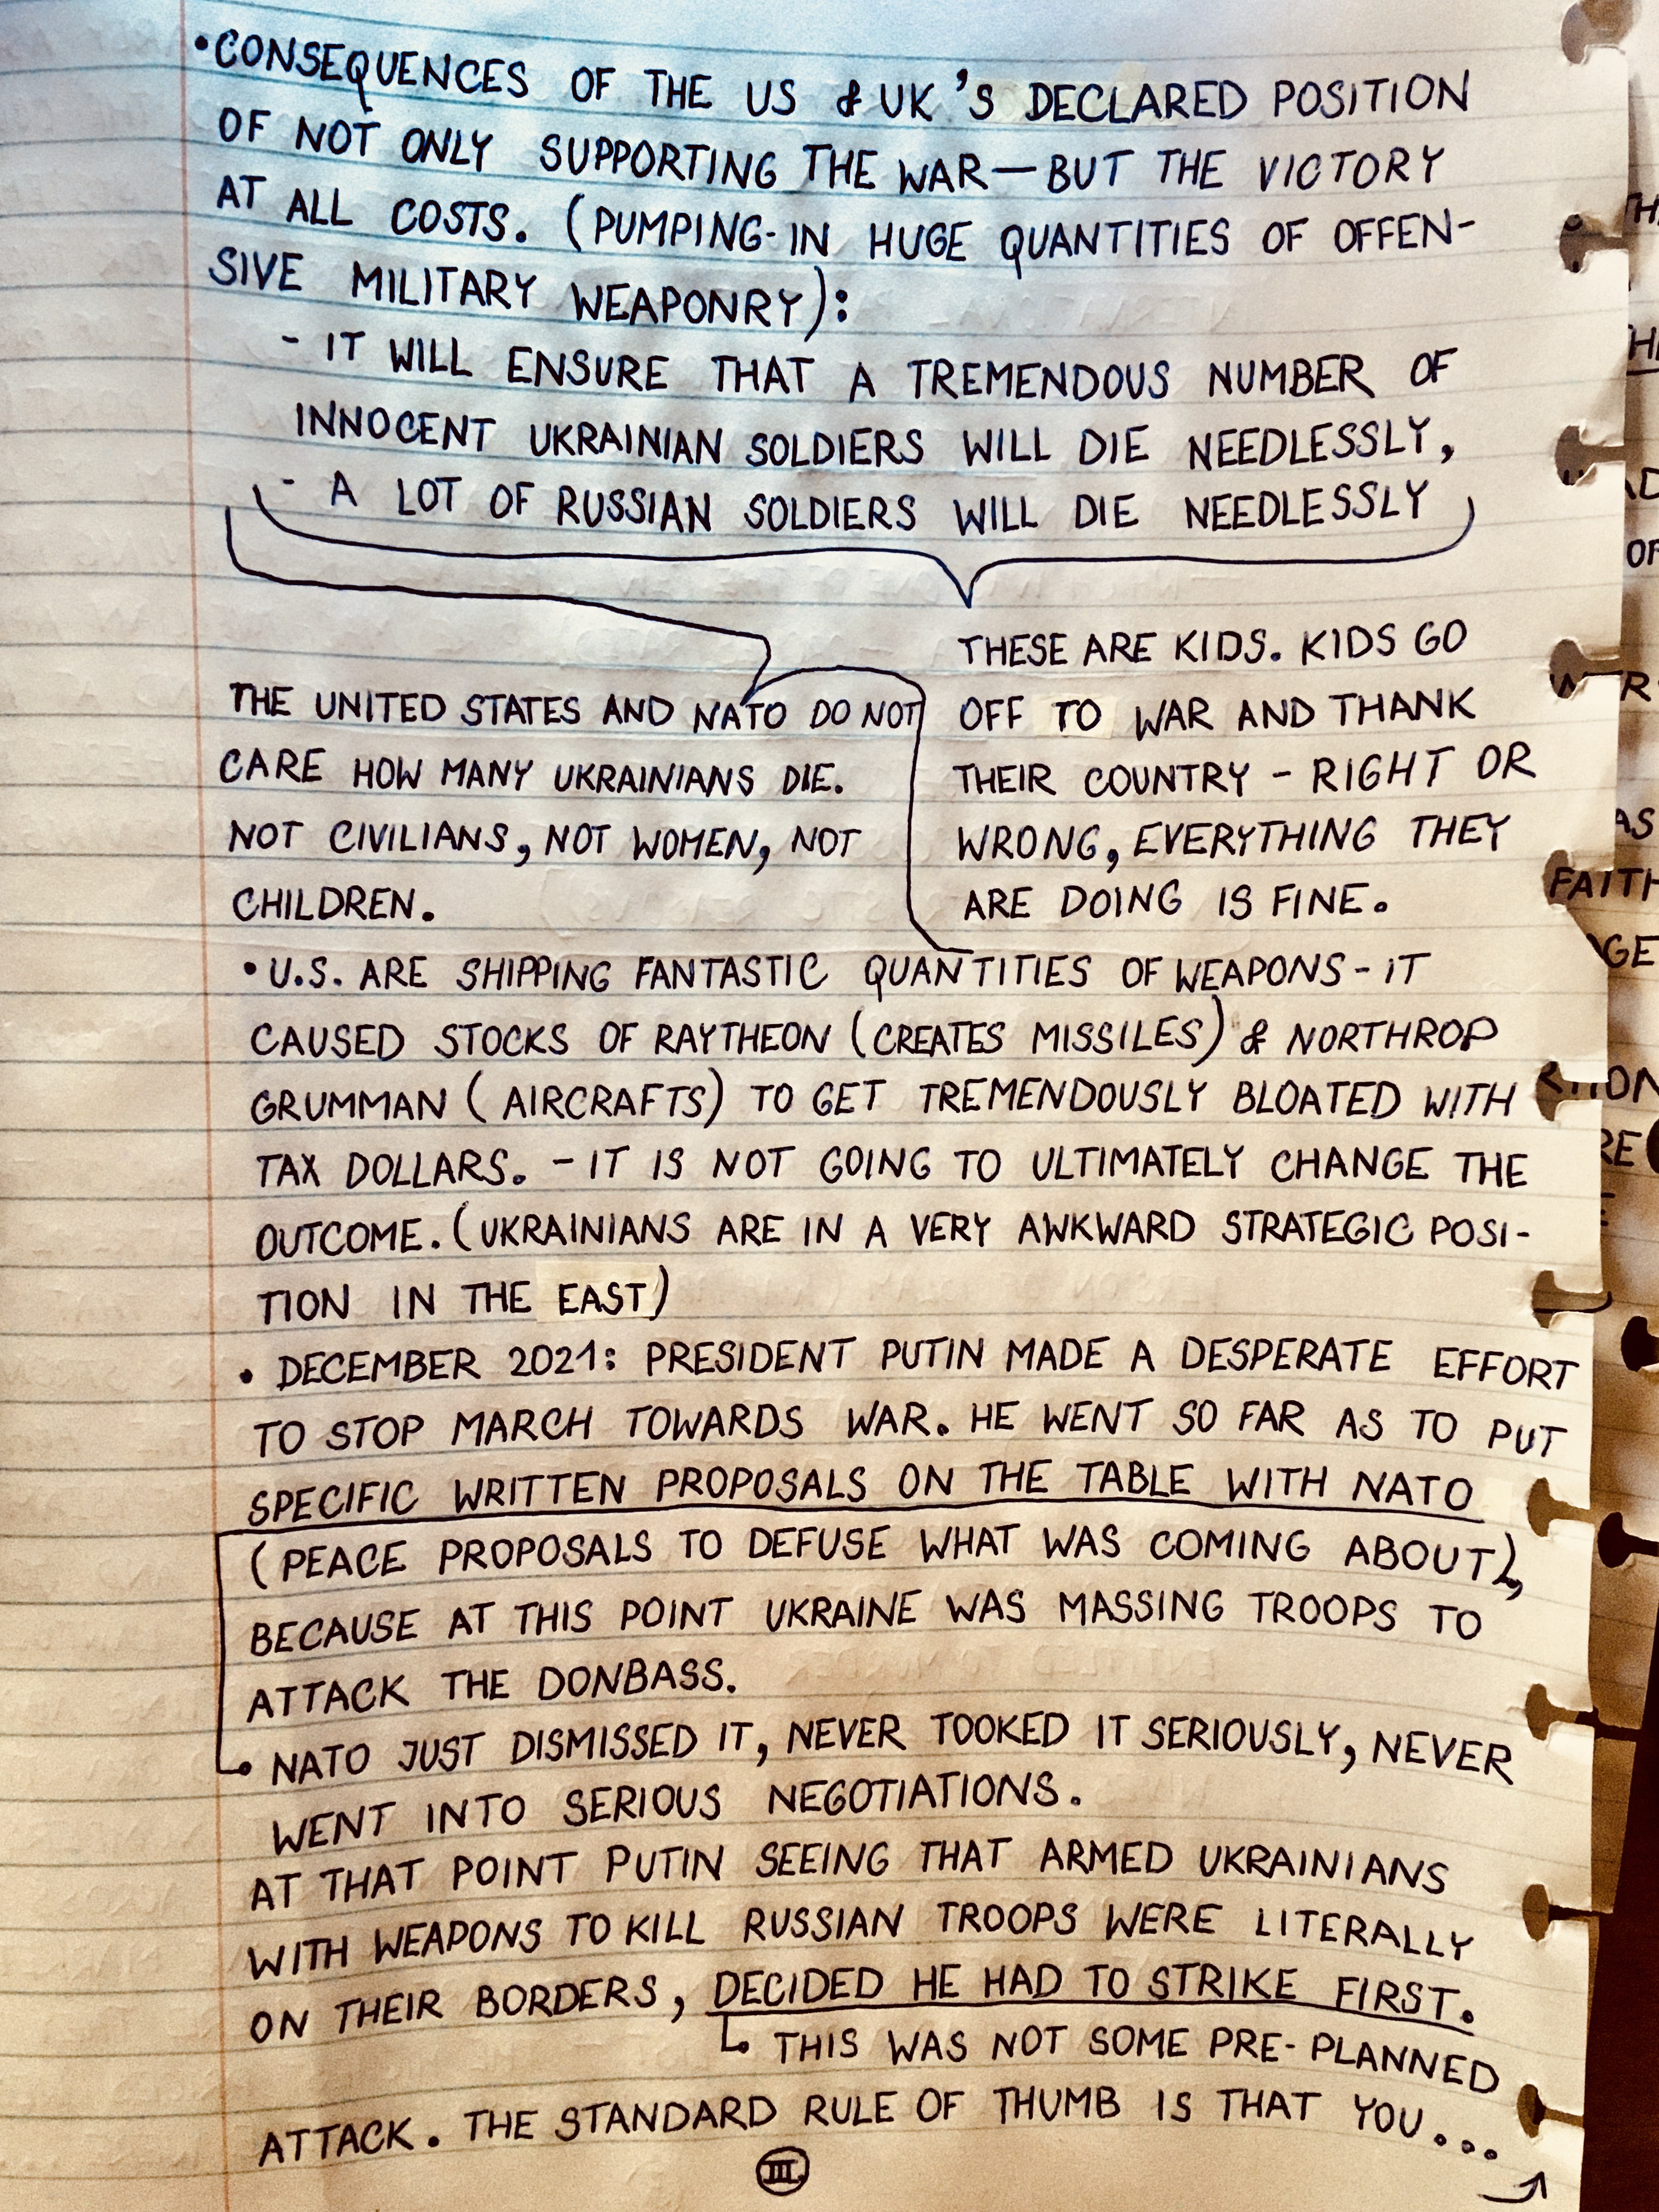 •CONSEQUENCES OF THE US & UK'S DECLARED POSITION
OF NOT ONLY SUPPORTING THE WAR—BUT THE VICTORY
AT ALL COSTS. (PUMPING-IN HUGE QUANTITIES OF OFFEN-
SIVE MILITARY WEAPONRY):
- IT WILL ENSURE THAT A TREMENDOUS NUMBER OF
INNOCENT UKRAINIAN SOLDIERS WILL DIE NEEDLESSLY,
- A LOT OF RUSSIAN SOLDIERS WILL DIE NEEDLESSLY
THESE ARE KIDS. KIDS GO
OFF TO WAR AND THANK
THEIR COUNTRY - RIGHT OR
WRONG, EVERYTHING THEY
ARE DOING IS FINE.
THE UNITED STATES AND NATO DO NOT
CARE HOW MANY UKRAINIANS DIE.
NOT CIVILIANS, NOT WOMEN, NOT
CHILDREN.
•U.S. ARE SHIPPING FANTASTIC QUANTITIES OF WEAPONS - IT
CAUSED STOCKS OF RAYTHEON (CREATES MISSILES) & NORTHROP
GRUMMAN (AIRCRAFTS) TO GET TREMENDOUSLY BLOATED WITH
TAX DOLLARS. - IT IS NOT GOING TO ULTIMATELY CHANGE THE
OUTCOME. (UKRAINIANS ARE IN A VERY AWKWARD STRATEGIC POSI-
TION IN THE EAST)
• DECEMBER 2021: PRESIDENT PUTIN MADE A DESPERATE EFFORT
TO STOP MARCH TOWARDS WAR. HE WENT SO FAR AS TO PUT
SPECIFIC WRITTEN PROPOSALS ON THE TABLE WITH NATO
(PEACE PROPOSALS TO DEFUSE WHAT WAS COMING ABOUT),
BECAUSE AT THIS POINT UKRAINE WAS MASSING TROOPS TO
ATTACK THE DONBASS.
NATO JUST DISMISSED IT, NEVER TOOKED IT SERIOUSLY, NEVER
WENT INTO SERIOUS NEGOTIATIONS.
AT THAT POINT PUTIN SEEING THAT ARMED UKRAINIANS
WITH WEAPONS TO KILL RUSSIAN TROOPS WERE LITERALLY
ON THEIR BORDERS, DECIDED HE HAD TO STRIKE FIRST.
THIS WAS NOT SOME PRE-PLANNED
ATTACK. THE STANDARD RULE OF THUMB IS THAT YOU...
III.